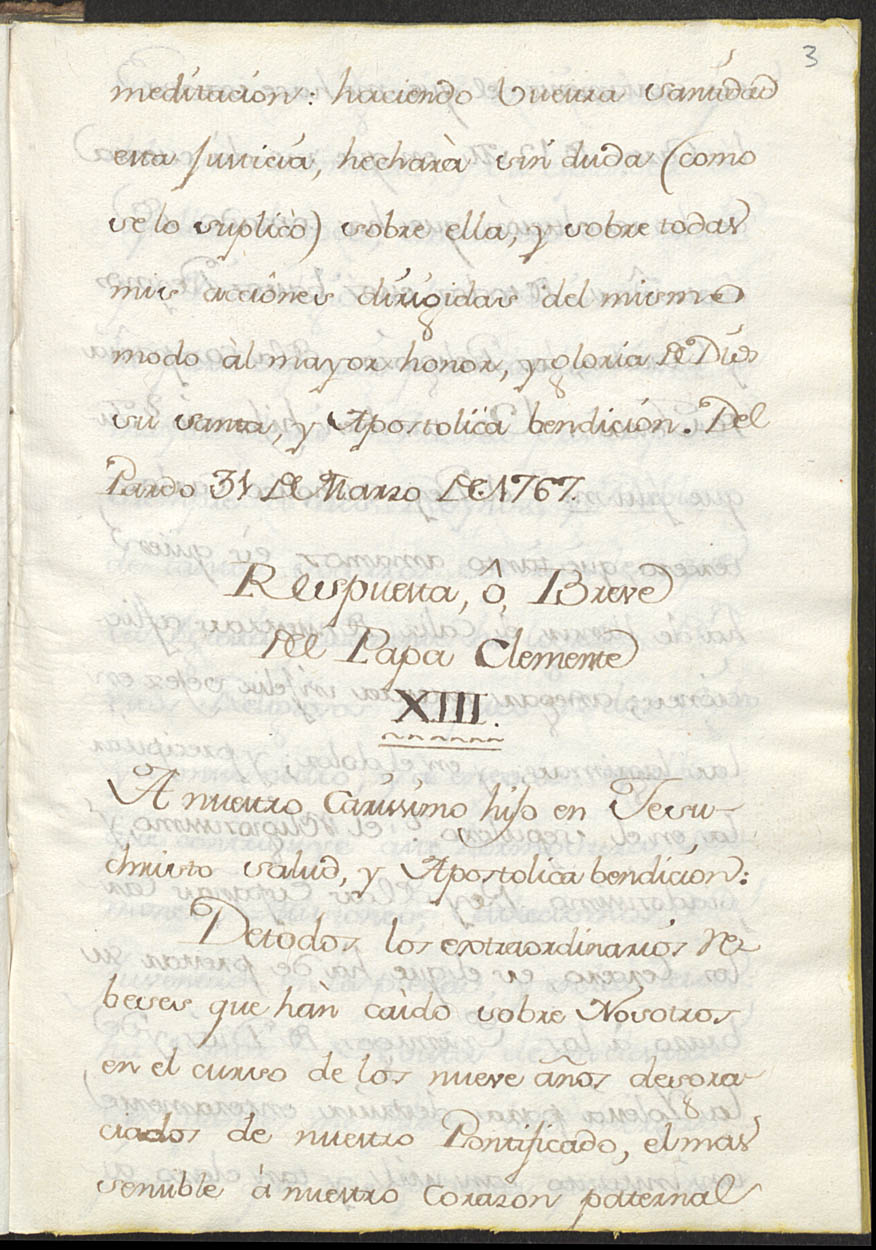 3
meditación: haciendo Vuestra Santidad
esta Justicia, hecharà sin duda (como
se lo suplicò) sobre ella, y sobre todas
mis acciónes dirigidas del mismo
modo al mayor honor, y gloria de Dios
su santa, y Apostolica bendición. Del
Pardo 31 de Marzo de 1767.
Respuesta, ô, Breve
del Papa Clemente
XIII.
A nuestro Carissimo hijo en Jesu-
christo salud, y Apostolica bendición:
De todos los extraordinarios re-
beses que hàn caìdo sobre Nosotros
en el curso de los nueve años desgra-
ciados de nuestro Pontificado, el mas
sensible à nuestro Corazon paternal